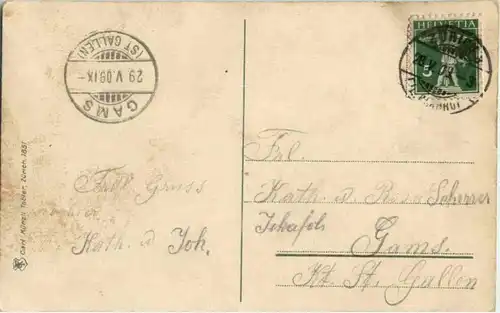 HELVETIA
5
ZÜRICH
GAMS
(ST GALLEN)
29.V.09.IX-
Frl.
Kath. u. Rosa Scherrer
Gams.
Kt. St. Gallen
Gruss
Kath. u. Joh.
Carl Künzli-Tobler, Zürich